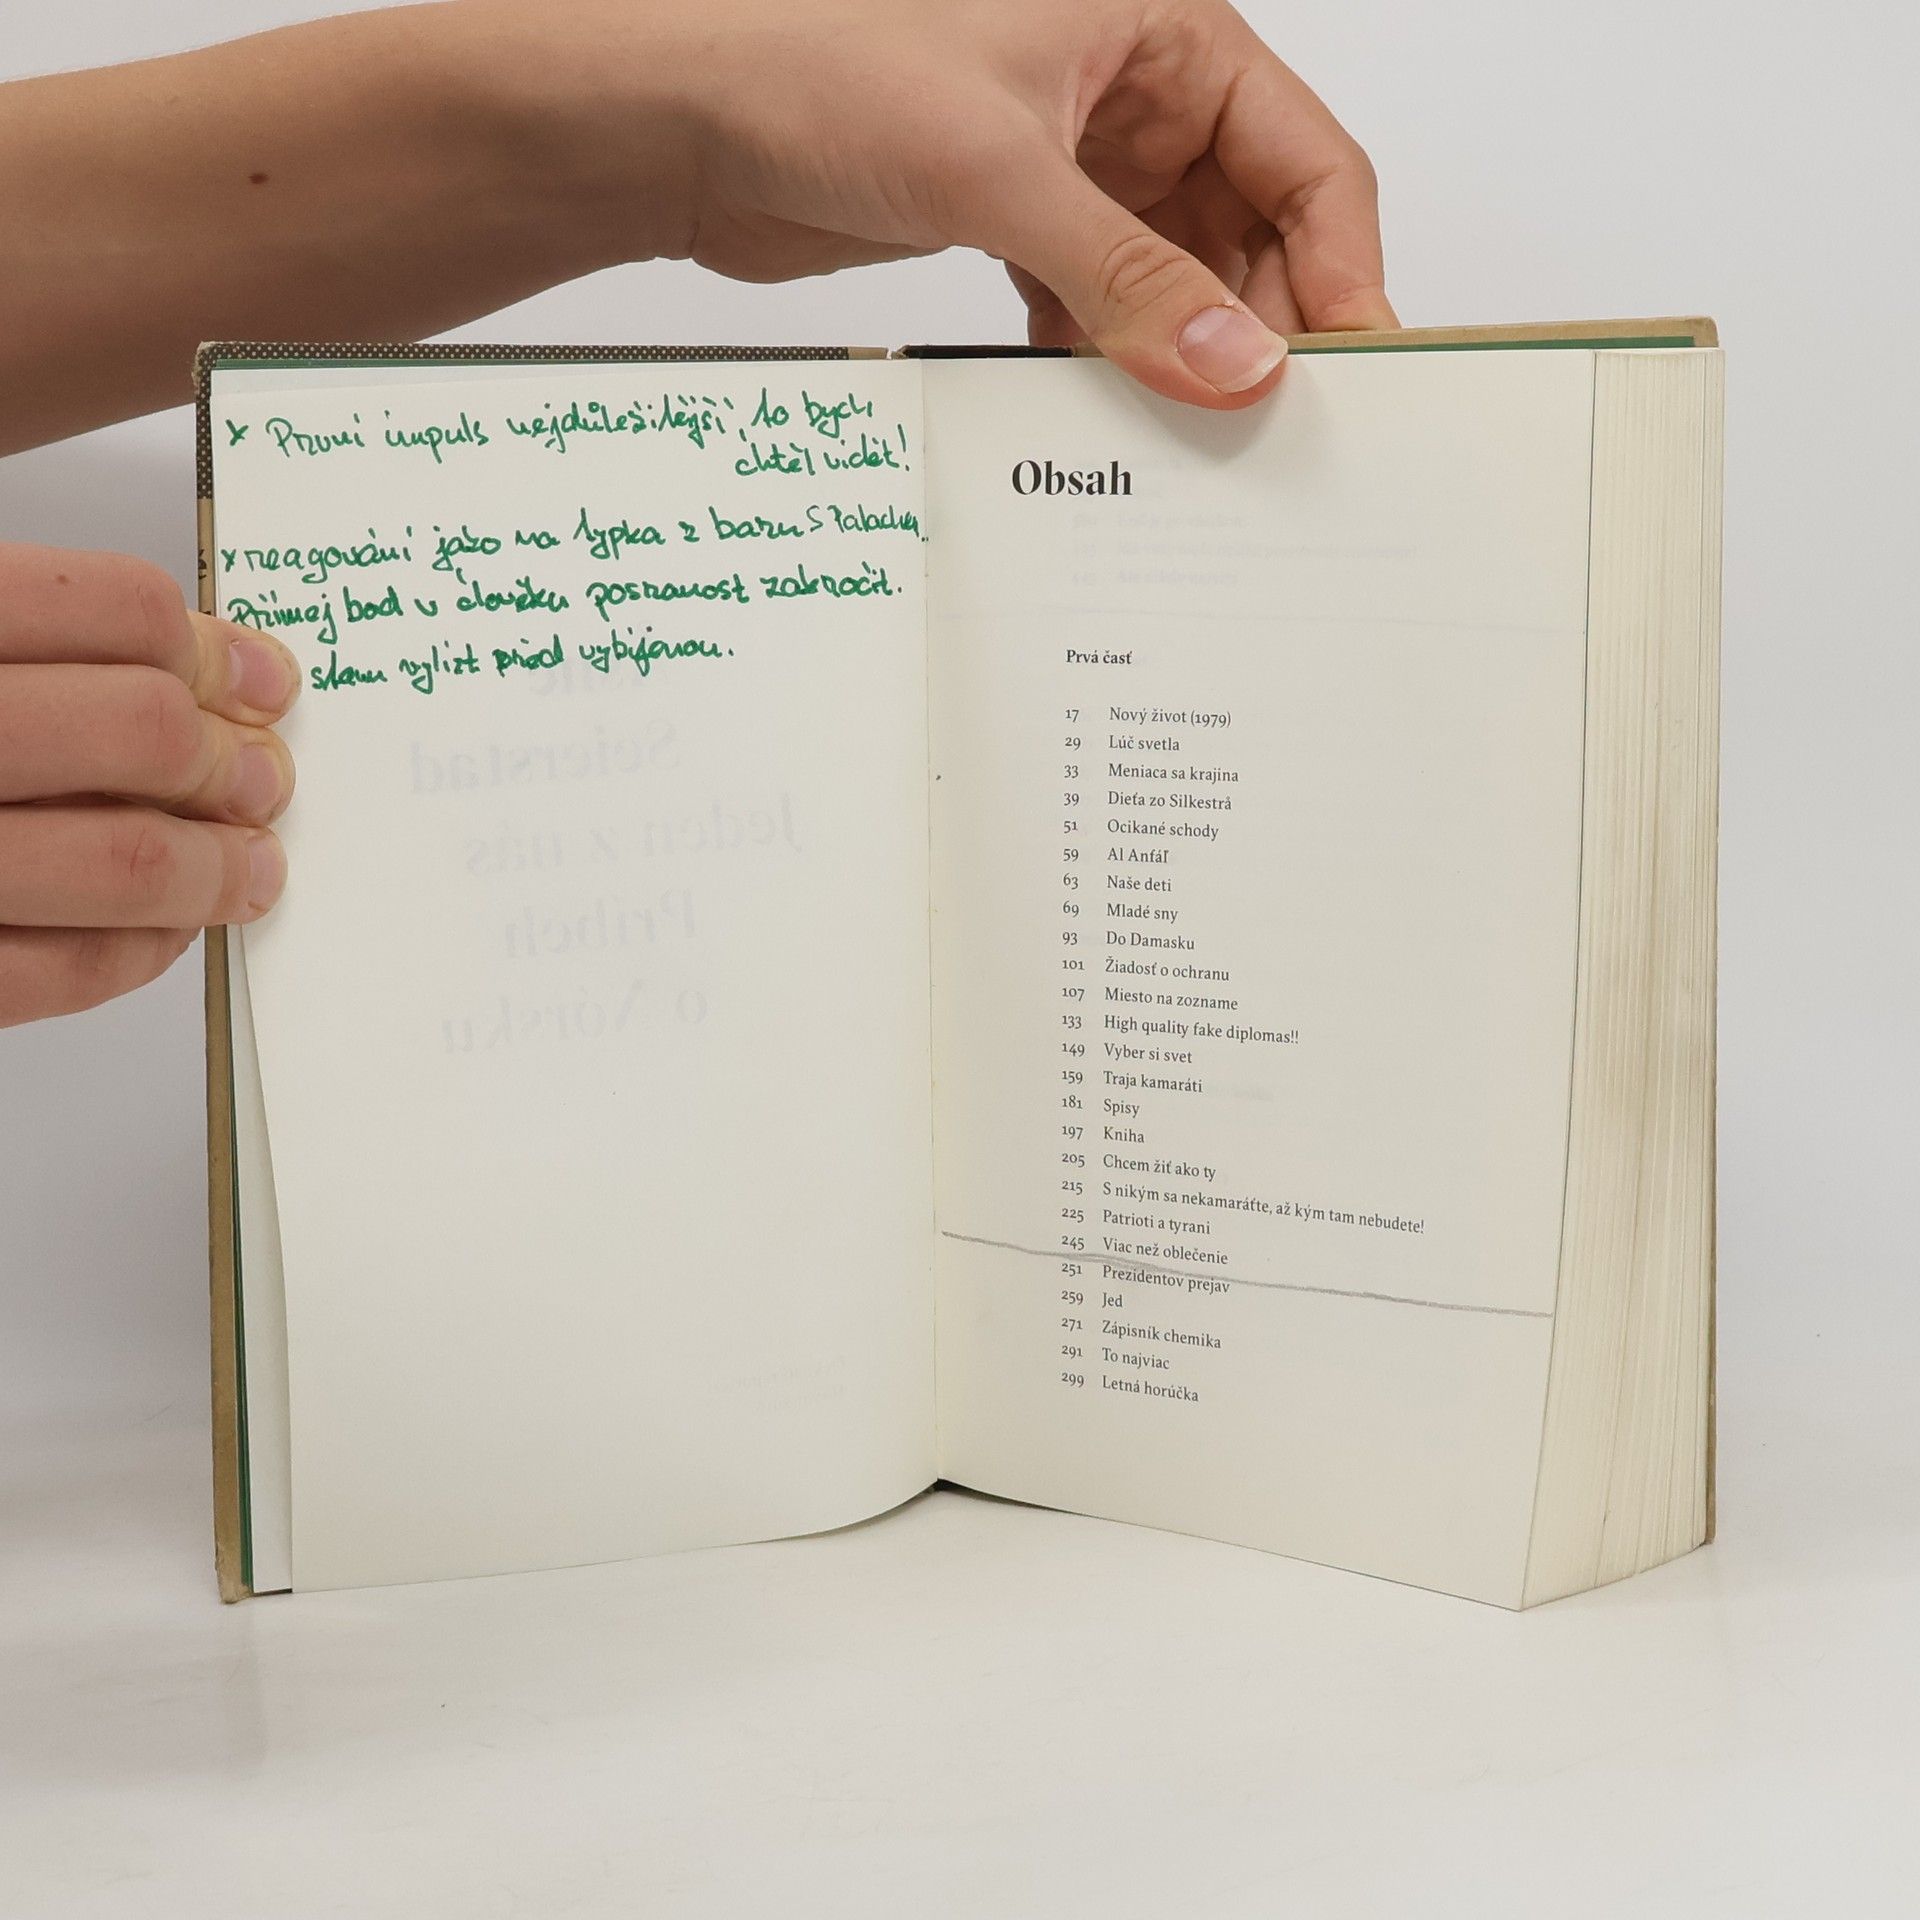 x První impuls nejdůležitější, to bych
chtěl vidět!
x reagování jako na typka z baru S
Přímej bod v člověku posranost zakročit.
před vybíjenou.
Seierstad
Jeden z nás
Príbeh
o Nórsku
Obsah
Prvá časť
17 Nový život (1979)
29 Lúč svetla
33 Meniaca sa krajina
39 Dieťa zo Silkestrå
51 Ocikané schody
59 Al Anfáľ
63 Naše deti
69 Mladé sny
93 Do Damasku
101 Žiadosť o ochranu
107 Miesto na zozname
133 High quality fake diplomas!!
149 Vyber si svet
159 Traja kamaráti
181 Spisy
197 Kniha
205 Chcem žiť ako ty
215 S nikým sa nekamaráťte, až kým tam nebudete!
225 Patrioti a tyrani
245 Viac než oblečenie
251 Prezidentov prejav
259 Jed
271 Zápisník chemika
291 To najviac
299 Letná horúčka